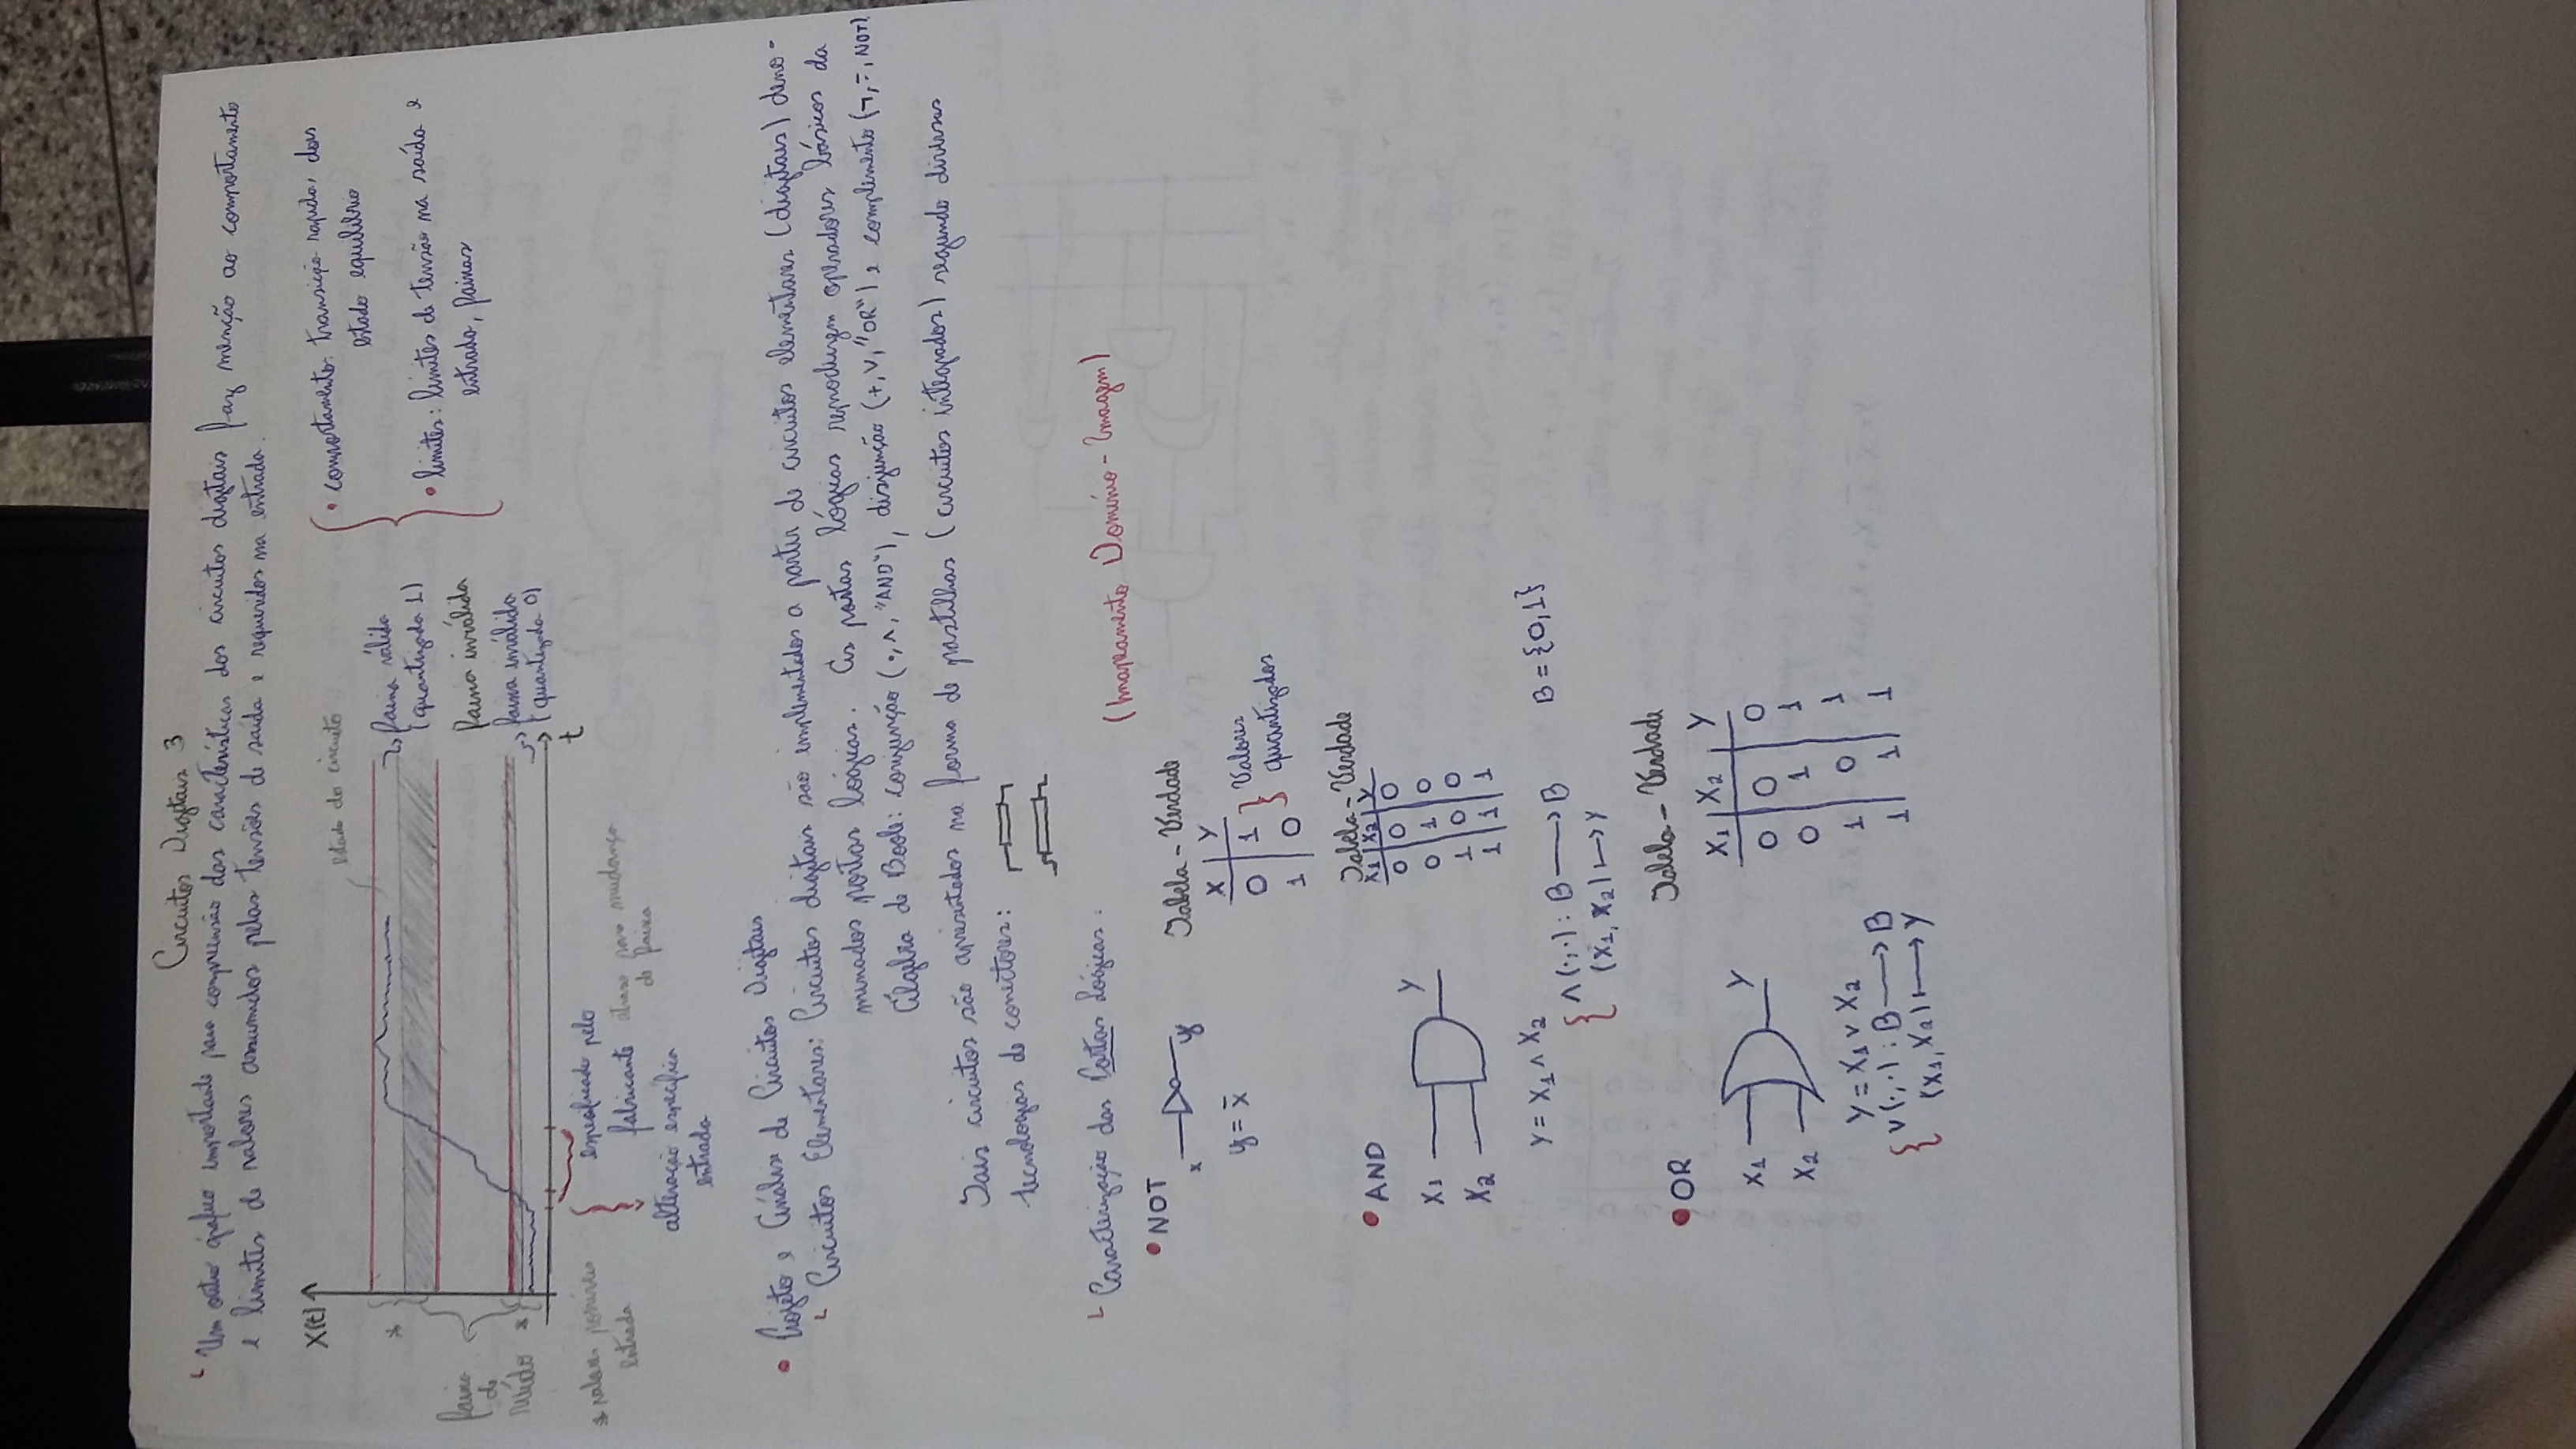 Circuitos Digitais 3
Um outro gráfico importante para compreensão das características dos circuitos digitais faz menção ao comportamento
e limites de valores assumidos pelas tensões de saída e requeridos na entrada.
X(t)
estado do circuito
*
faixa válida
(quantizada 1)
Faixa inválida
faixa inválida
(quantizada 0)
faixa
de
ruído
*
t
• comportamento: transição rapida, dois
estado equilibrio
• limites: limites de tensão na saída e
entrada, faixas
* valores possíveis
entrada
especificado pelo
fabricante
atraso para mudança
de faixa
alteração especifica
entrada
• Projeto e Análise de Circuitos Digitais
Circuitos Elementares: Circuitos digitais são implementados a partir de circuitos elementares (digitais) deno-
minados portas lógicas. As portas lógicas reproduzem operadores básicos da
Álgebra de Boole: conjunção (·, ∧, "AND"), disjunção (+, ∨, "OR") e complemento (¬, -, NOT)
Tais circuitos são apresentados na forma de pastilhas (circuitos integrados) segundo diversas
tecnologias de conectores:
Caracterização das Portas Lógicas.
(mapeamento Domínio - Imagem)
• NOT
x y
y = x̄
Tabela - Verdade
X Y
0 1
1 0
Valores
quantizados
• AND
X1
X2
Y
Tabela - Verdade
X1 X2 Y
0 0 0
0 1 0
1 0 0
1 1 1
Y = X1 ∧ X2
∧(·,·): B → B
(X1, X2) ↦ Y
B = {0,1}
• OR
X1
X2
Y
Tabela - Verdade
X1 X2 Y
0 0 0
0 1 1
1 0 1
1 1 1
Y = X1 ∨ X2
∨(·,·): B → B
(X1, X2) ↦ Y